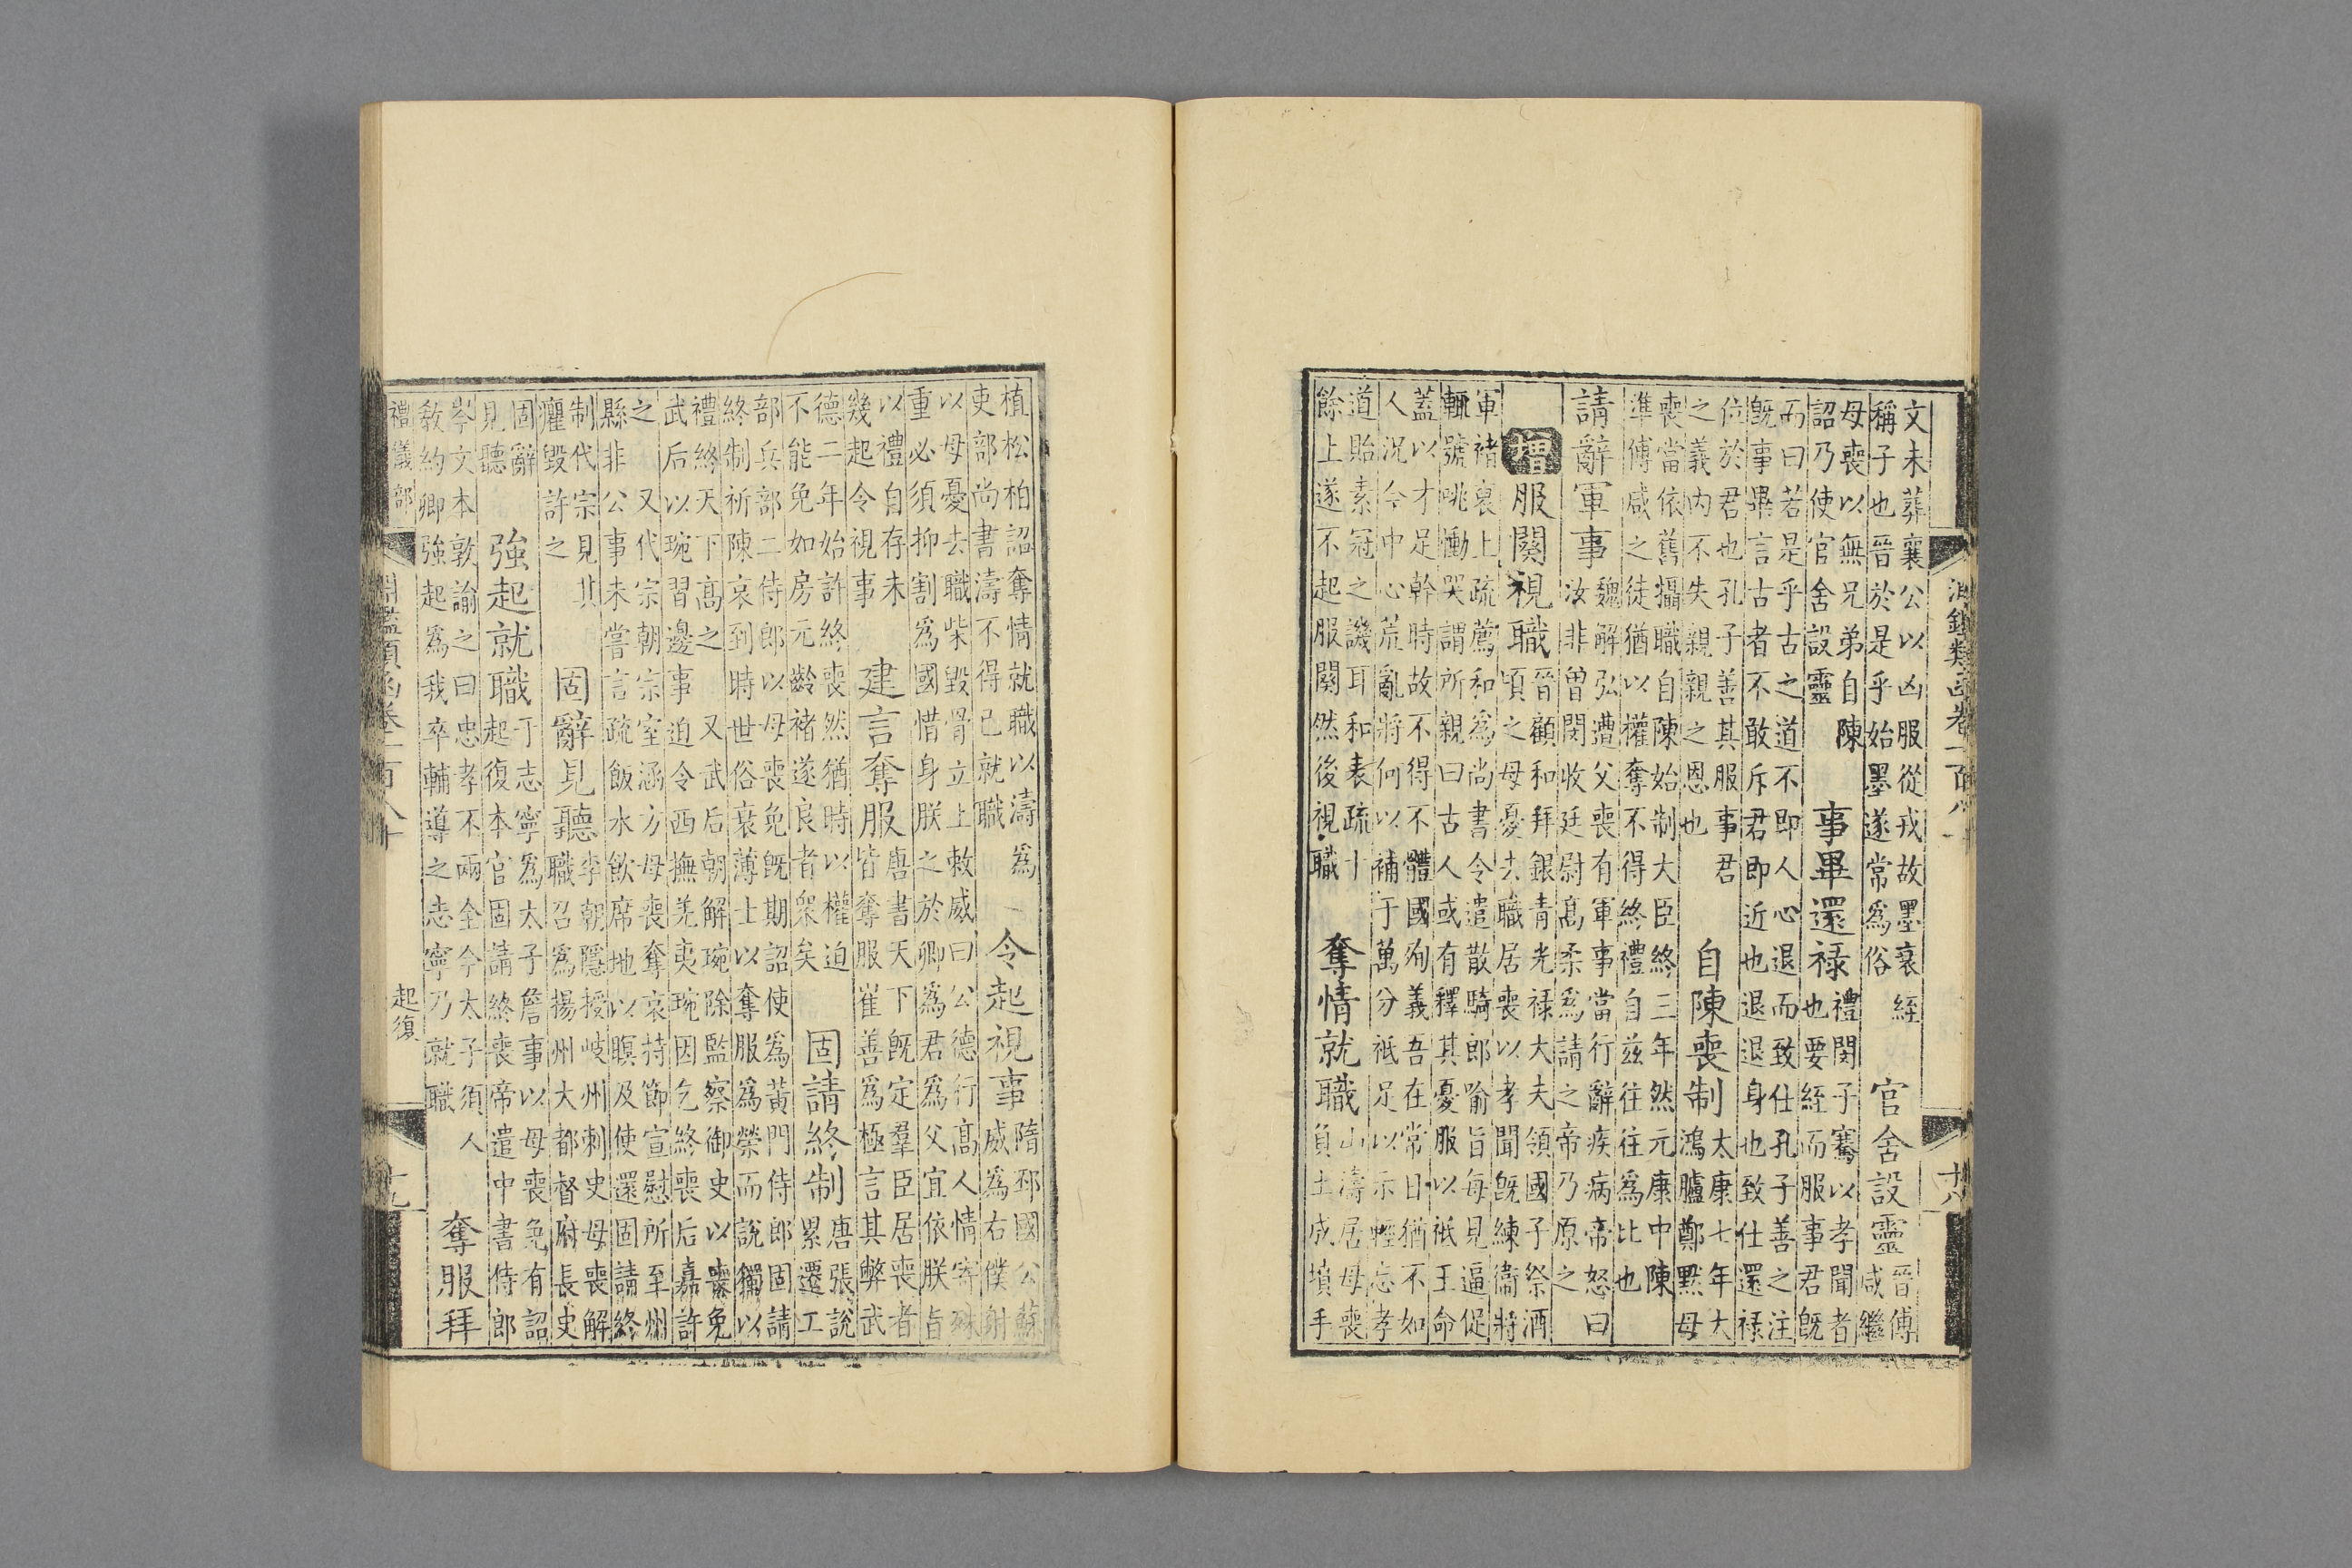 淵鑑類函卷一百八十 十八
文未葬襄公以凶服從戎故墨衰絰
稱子也晉於是乎始墨遂常爲俗
官舍設靈
晉傅
咸繼
母喪以無兄弟自陳
詔乃使官舍設靈
事畢還祿
禮閔子騫以孝聞者
也要絰而服事君既
而曰若是乎古之道不即人心退而致仕孔子善之注
既事畢言古者不敢斥君即近也退退身也致仕還祿
位於君也孔子善其服事君
之義內不失親親之恩也
自陳喪制
太康七年大
鴻臚鄭默母
喪當依舊攝職自陳始制大臣終三年然元康中陳
準傅咸之徒猶以權奪不得終禮自茲往往爲比也
請辭軍事
魏解弘遭父喪有軍事當行辭疾病帝怒曰
汝非曾閔收廷尉高柔爲請之帝乃原之
增服闋視職
晉顧和拜銀青光祿大夫領國子祭酒
頃之母憂去職居喪以孝聞既練衞將
軍褚裒上疏薦和爲尚書令遣散騎郎喻旨每見逼促
輒號咷慟哭謂所親曰古人或有釋其憂服以祗王命
蓋以才足幹時故不得不體國徇義吾在常日猶不如
人況今中心荒亂將何以補于萬分祗足以示輕忘孝
道貽素冠之譏耳和表疏十
餘上遂不起服闋然後視職
奪情就職
山濤居母喪
負土成墳手
植松柏詔奪情就職以濤爲
吏部尚書濤不得已就職
令起視事
隋邳國公蘇
威爲右僕射
以母憂去職柴毀骨立上敕威曰公德行高人情寄殊
重必須抑割爲國惜身朕之於卿爲君爲父宜依朕旨
以禮自存未
幾起令視事
建言奪服
唐書天下既定羣臣居喪者
皆奪服崔善爲極言其弊武
德二年始許終喪然猶時以權迫
不能免如房元齡褚遂良者衆矣
固請終制
唐張說
累遷工
部兵部二侍郎以母喪免既期詔使爲黃門侍郎固請
終制祈陳哀到時世俗衰薄士以奪服爲榮而說獨以
禮終天下高之 又武后朝解琬除監察御史以喪免
武后以琬習邊事迫令西撫羌夷琬因乞終喪后嘉許
之 又代宗朝宗室涵方母喪奪哀持節宣慰所至州
縣非公事未嘗言疏飯水飲席地以瞑及使還固請終
制代宗見其
癯毀許之
固辭見聽
李朝隱授岐州刺史母喪解
職召爲揚州大都督府長史
固辭
見聽
強起就職
于志寧爲太子詹事以母喪免有詔
起復本官固請終喪帝遣中書侍郎
岑文本敦諭之曰忠孝不兩全今太子須人
敎約卿強起爲我卒輔導之志寧乃就職
奪服拜
禮儀部 淵鑑類函卷一百八十 起復 十九